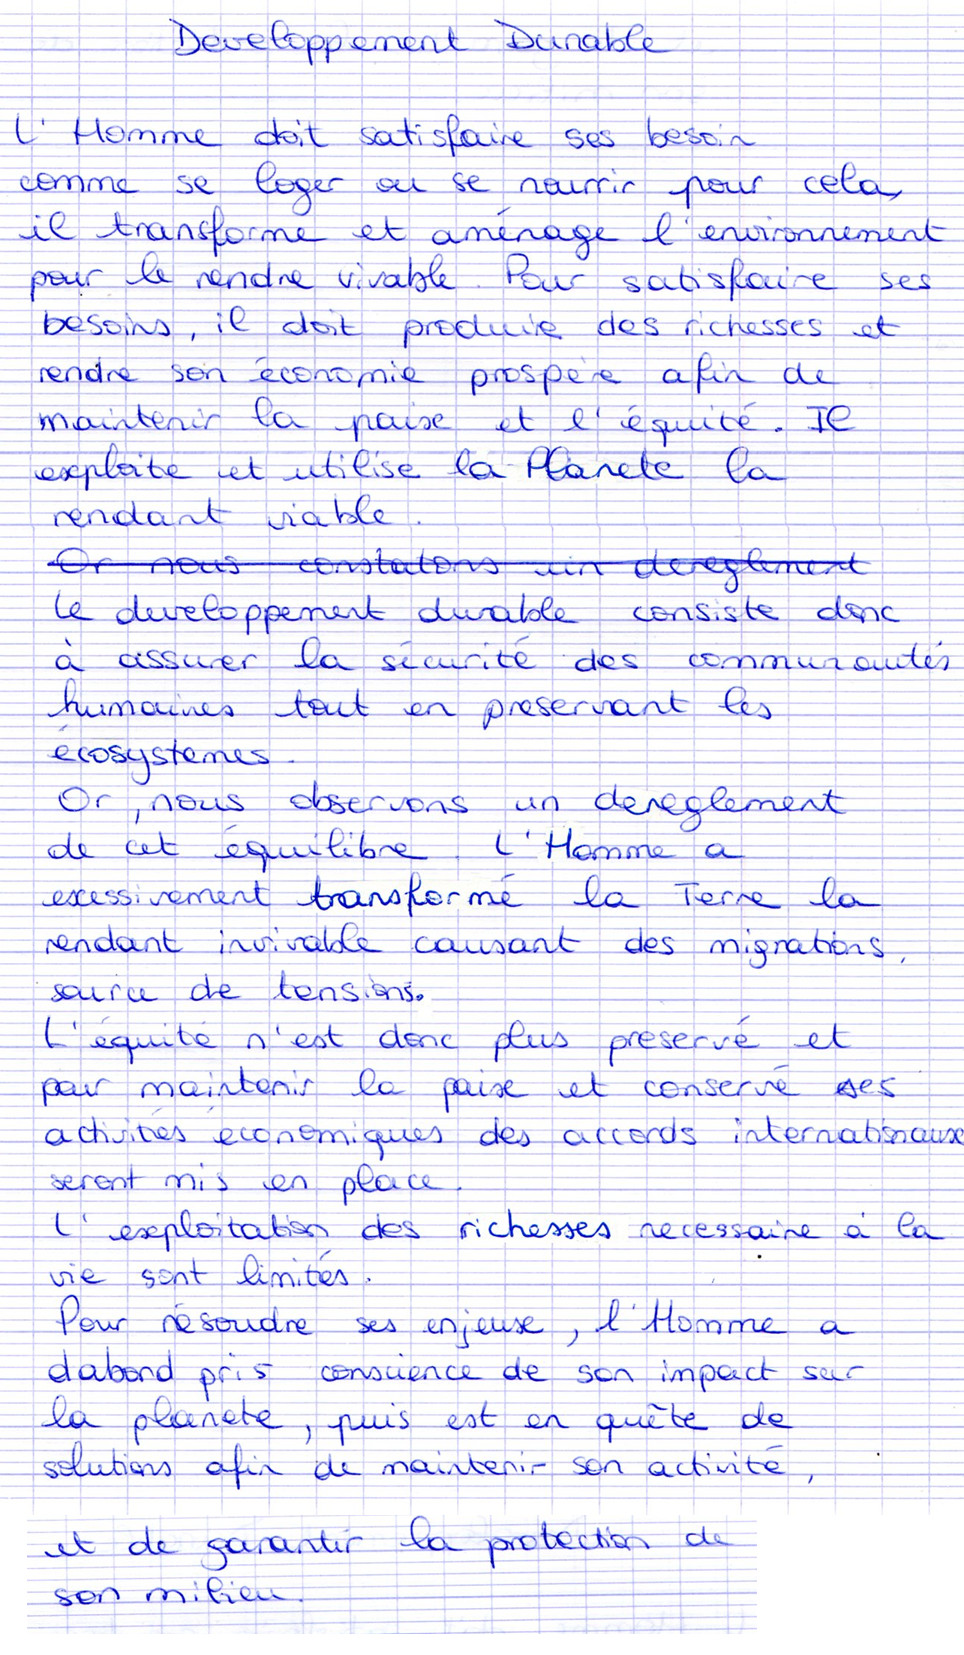 Developpement Durable
L'Homme doit satisfaire ses besoin
comme se loger ou se nourrir pour cela,
il transforme et aménage l'environnement
pour le rendre vivable. Pour satisfaire ses
besoins, il doit produire des richesses et
rendre son économie prospère afin de
maintenir la paix et l'équité. Il
exploite et utilise la Planete la
rendant viable.
Or nous constatons un dereglement
Le developpement durable consiste donc
à assurer la sécurité des communautés
humaines tout en preservant les
écosystemes.
Or, nous observons un dereglement
de cet équilibre. L'Homme a
excessivement transformé la Terre la
rendant invivable causant des migrations,
source de tensions.
L'équité n'est donc plus preservé et
pour maintenir la paix et conservé ses
activités économiques des accords internationaux
seront mis en place.
L'exploitation des richesses necessaire à la
vie sont limités.
Pour résoudre ses enjeux, l'Homme a
dabord pris conscience de son impact sur
la planete, puis est en quête de
solutions afin de maintenir son activité,
et de garantir la protection de
son milieu.